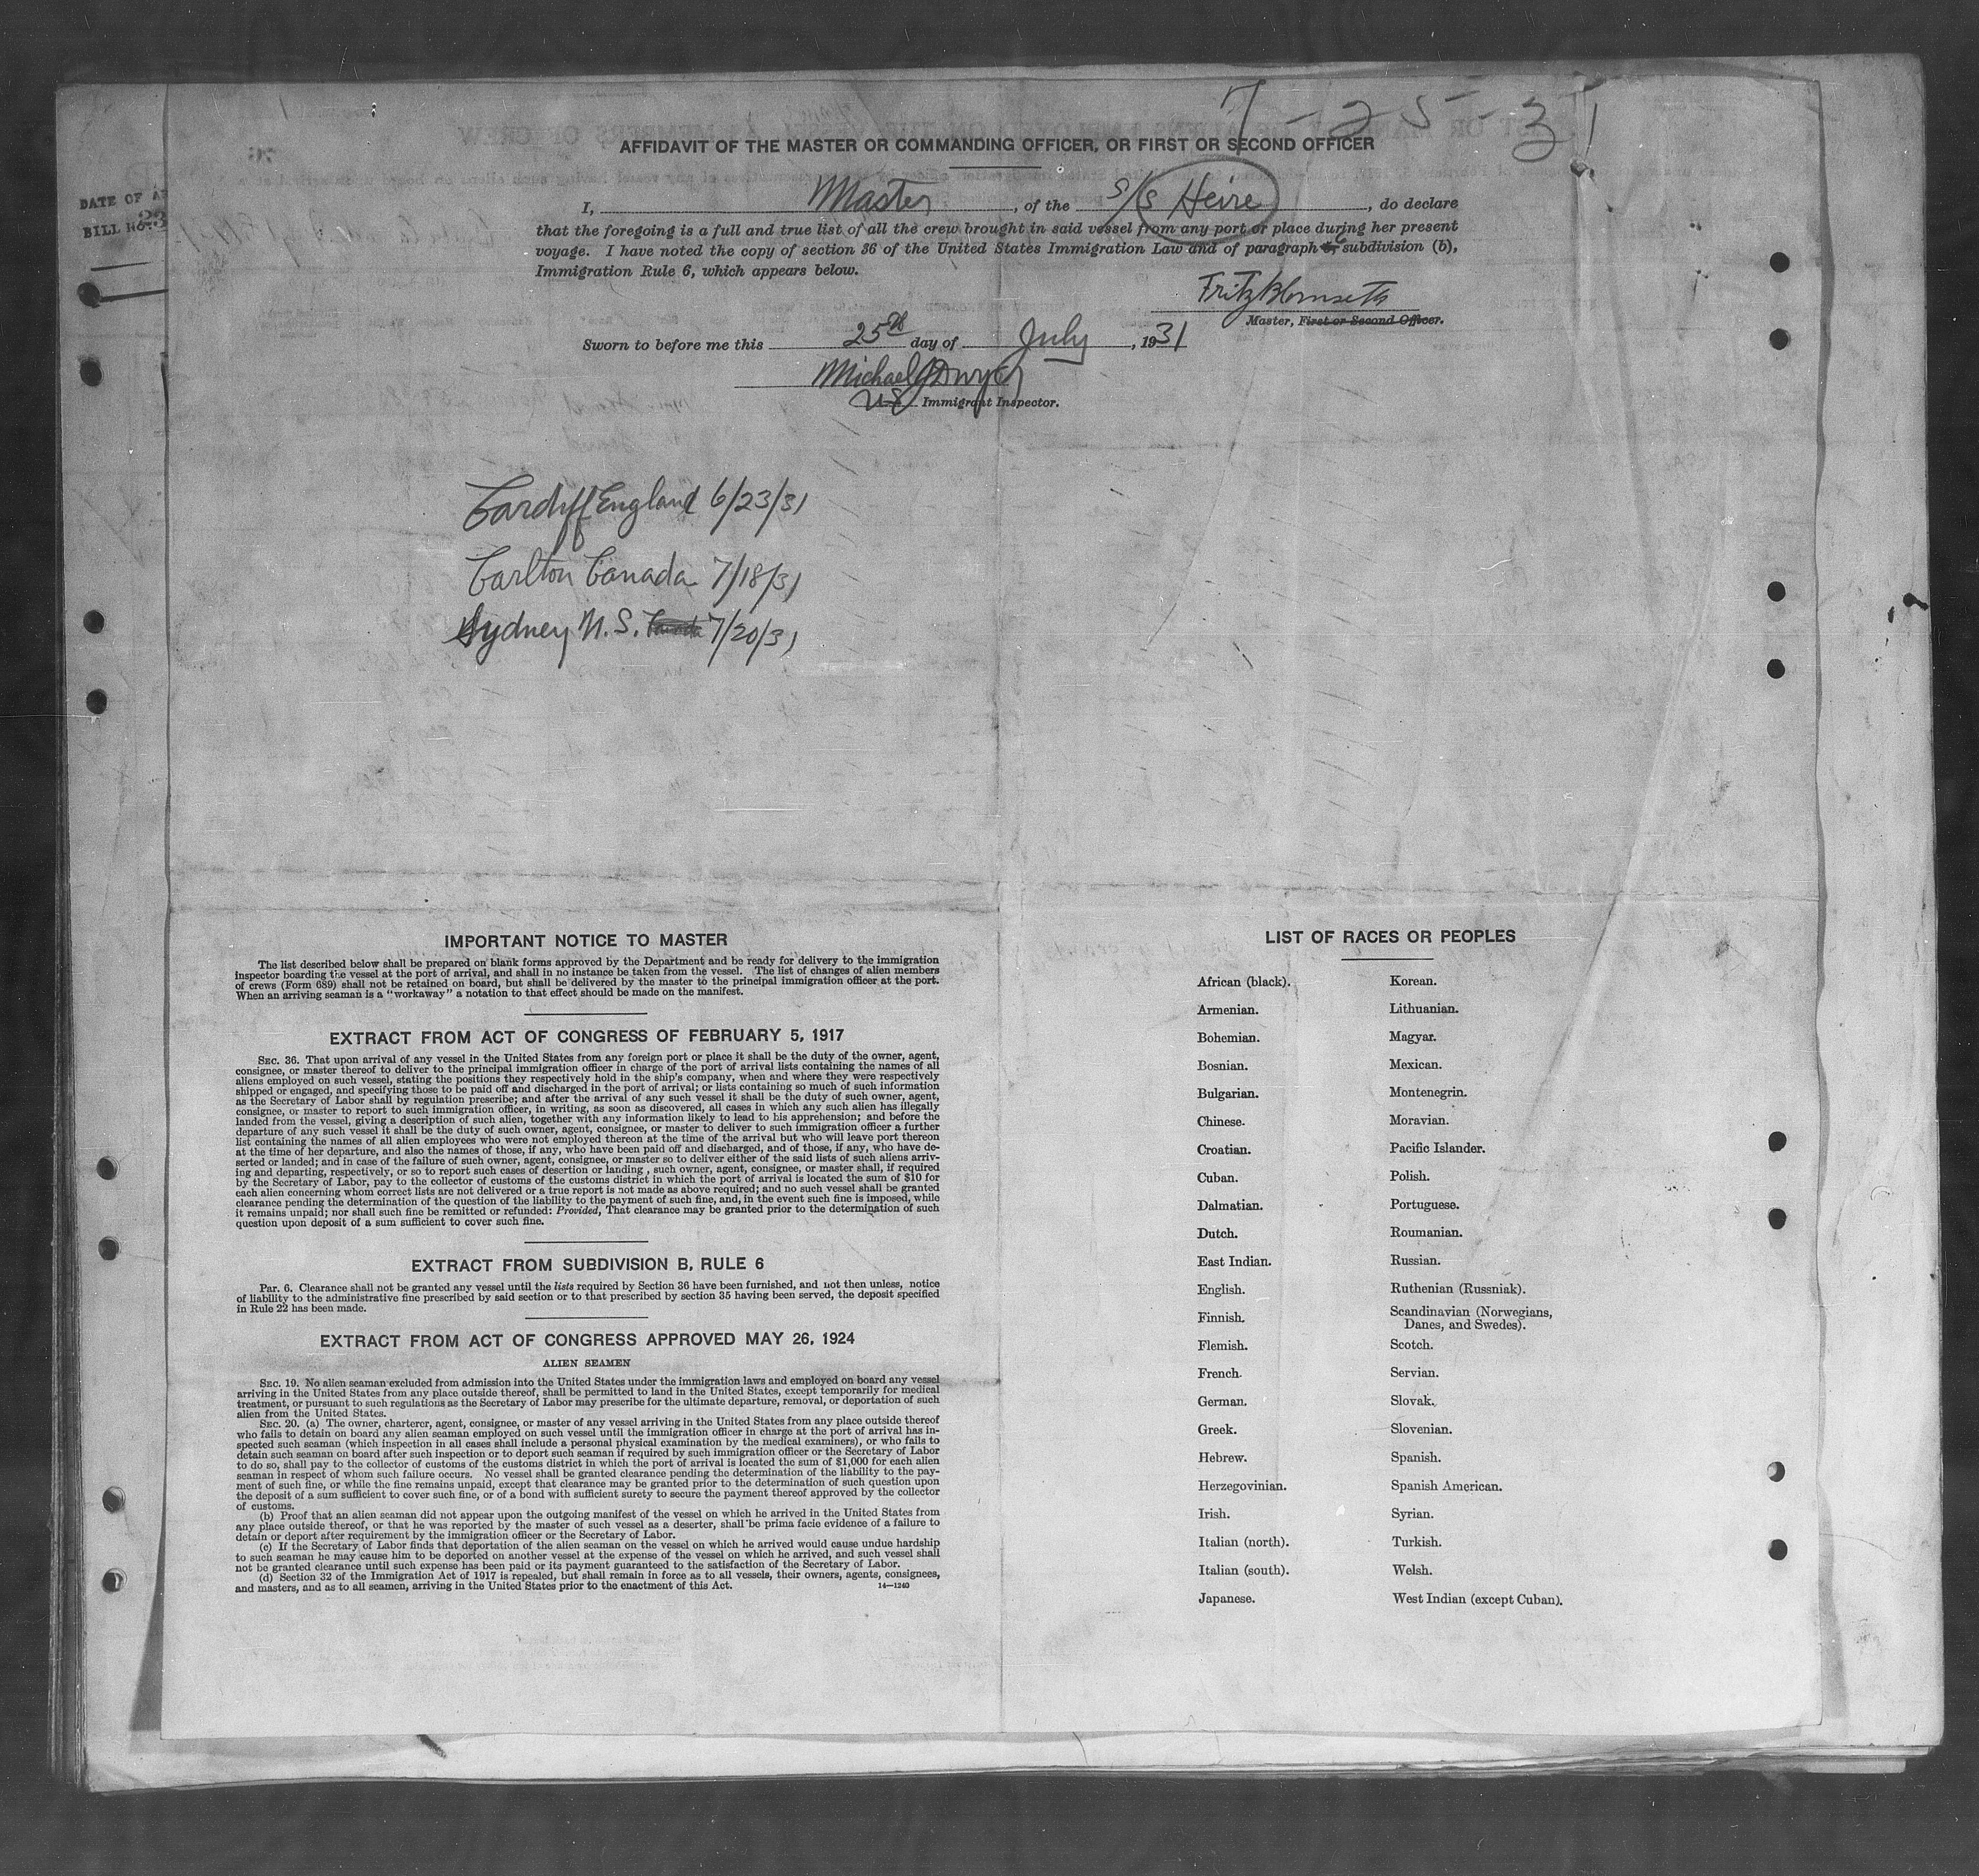 7-25-31
AFFIDAVIT OF THE MASTER OR COMMANDING OFFICER, OR FIRST OR SECOND OFFICER
DATE OF
BILL NO. 23
I, Master, of the S/S Heire, do declare
that the foregoing is a full and true list of all the crew brought in said vessel from any port or place during her present
voyage. I have noted the copy of section 36 of the United States Immigration Law and of paragraph 6 subdivision (b),
Immigration Rule 6, which appears below.
Fritz
Master, First or Second Officer.
Sworn to before me this 25th day of July, 1931
Michael J Dwyer
U.S. Immigrant Inspector.
Cardiff England 6/23/31
Carlton Canada 7/18/31
Sydney N.S. Canada 7/20/31
IMPORTANT NOTICE TO MASTER
The list described below shall be prepared on blank forms approved by the Department and be ready for delivery to the immigration
inspector boarding the vessel at the port of arrival, and shall in no instance be taken from the vessel. The list of changes of alien members
of crews (Form 689) shall not be retained on board, but shall be delivered by the master to the principal immigration officer at the port.
When an arriving seaman is a "workaway" a notation to that effect should be made on the manifest.
EXTRACT FROM ACT OF CONGRESS OF FEBRUARY 5, 1917
SEC. 36. That upon arrival of any vessel in the United States from any foreign port or place it shall be the duty of the owner, agent,
consignee, or master thereof to deliver to the principal immigration officer in charge of the port of arrival lists containing the names of all
aliens employed on such vessel, stating the positions they respectively hold in the ship's company, when and where they were respectively
shipped or engaged, and specifying those to be paid off and discharged in the port of arrival; or lists containing so much of such information
as the Secretary of Labor shall by regulation prescribe; and after the arrival of any such vessel it shall be the duty of such owner, agent,
consignee, or master to report to such immigration officer, in writing, as soon as discovered, all cases in which any such alien has illegally
landed from the vessel, giving a description of such alien, together with any information likely to lead to his apprehension; and before the
departure of any such vessel it shall be the duty of such owner, agent, consignee, or master to deliver to such immigration officer a further
list containing the names of all alien employees who were not employed thereon at the time of the arrival but who will leave port thereon
at the time of her departure, and also the names of those, if any, who have been paid off and discharged, and of those, if any, who have de-
serted or landed; and in case of the failure of such owner, agent, consignee, or master so to deliver either of the said lists of such aliens arriv-
ing and departing, respectively, or so to report such cases of desertion or landing, such owner, agent, consignee, or master shall, if required
by the Secretary of Labor, pay to the collector of customs of the customs district in which the port of arrival is located the sum of $10 for
each alien concerning whom correct lists are not delivered or a true report is not made as above required; and no such vessel shall be granted
clearance pending the determination of the question of the liability to the payment of such fine, and, in the event such fine is imposed, while
it remains unpaid; nor shall such fine be remitted or refunded: Provided, That clearance may be granted prior to the determination of such
question upon deposit of a sum sufficient to cover such fine.
EXTRACT FROM SUBDIVISION B, RULE 6
Par. 6. Clearance shall not be granted any vessel until the lists required by Section 36 have been furnished, and not then unless, notice
of liability to the administrative fine prescribed by said section or to that prescribed by section 35 having been served, the deposit specified
in Rule 22 has been made.
EXTRACT FROM ACT OF CONGRESS APPROVED MAY 26, 1924
ALIEN SEAMEN
SEC. 19. No alien seaman excluded from admission into the United States under the immigration laws and employed on board any vessel
arriving in the United States from any place outside thereof, shall be permitted to land in the United States, except temporarily for medical
treatment, or pursuant to such regulations as the Secretary of Labor may prescribe for the ultimate departure, removal, or deportation of such
alien from the United States.
SEC. 20. (a) The owner, charterer, agent, consignee, or master of any vessel arriving in the United States from any place outside thereof
who fails to detain on board any alien seaman employed on such vessel until the immigration officer in charge at the port of arrival has in-
spected such seaman (which inspection in all cases shall include a personal physical examination by the medical examiners), or who fails to
detain such seaman on board after such inspection or to deport such seaman if required by such immigration officer or the Secretary of Labor
to do so, shall pay to the collector of customs of the customs district in which the port of arrival is located the sum of $1,000 for each alien
seaman in respect of whom such failure occurs. No vessel shall be granted clearance pending the determination of the liability to the pay-
ment of such fine, or while the fine remains unpaid, except that clearance may be granted prior to the determination of such question upon
the deposit of a sum sufficient to cover such fine, or of a bond with sufficient surety to secure the payment thereof approved by the collector
of customs.
(b) Proof that an alien seaman did not appear upon the outgoing manifest of the vessel on which he arrived in the United States from
any place outside thereof, or that he was reported by the master of such vessel as a deserter, shall be prima facie evidence of a failure to
detain or deport after requirement by the immigration officer or the Secretary of Labor.
(c) If the Secretary of Labor finds that deportation of the alien seaman on the vessel on which he arrived would cause undue hardship
to such seaman he may cause him to be deported on another vessel at the expense of the vessel on which he arrived, and such vessel shall
not be granted clearance until such expense has been paid or its payment guaranteed to the satisfaction of the Secretary of Labor.
(d) Section 32 of the Immigration Act of 1917 is repealed, but shall remain in force as to all vessels, their owners, agents, consignees,
and masters, and as to all seamen, arriving in the United States prior to the enactment of this Act.
14—1240
LIST OF RACES OR PEOPLES
African (black). Korean.
Armenian. Lithuanian.
Bohemian. Magyar.
Bosnian. Mexican.
Bulgarian. Montenegrin.
Chinese. Moravian.
Croatian. Pacific Islander.
Cuban. Polish.
Dalmatian. Portuguese.
Dutch. Roumanian.
East Indian. Russian.
English. Ruthenian (Russniak).
Finnish. Scandinavian (Norwegians,
Danes, and Swedes).
Flemish. Scotch.
French. Servian.
German. Slovak.
Greek. Slovenian.
Hebrew. Spanish.
Herzegovinian. Spanish American.
Irish. Syrian.
Italian (north). Turkish.
Italian (south). Welsh.
Japanese. West Indian (except Cuban).